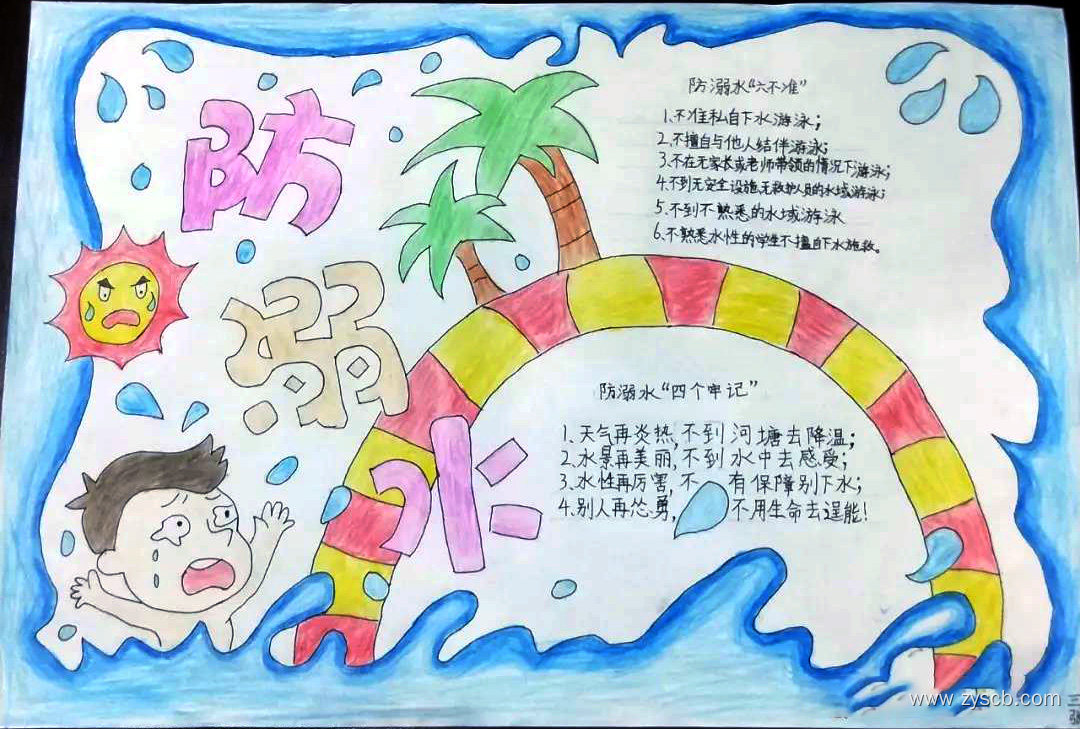 防
溺
水
防溺水“六不准”
1、不准私自下水游泳；
2、不擅自与他人结伴游泳；
3、不在无家长或老师带领的情况下游泳；
4、不到无安全设施、无救护人员的水域游泳；
5、不到不熟悉的水域游泳
6、不熟悉水性的学生不擅自下水施救。
防溺水“四个牢记”
1、天气再炎热，不到河塘去降温；
2、水景再美丽，不到水中去感受；
3、水性再厉害，不有保障别下水；
4、别人再怂勇，不用生命去逞能！
www.zyscb.com
三
张